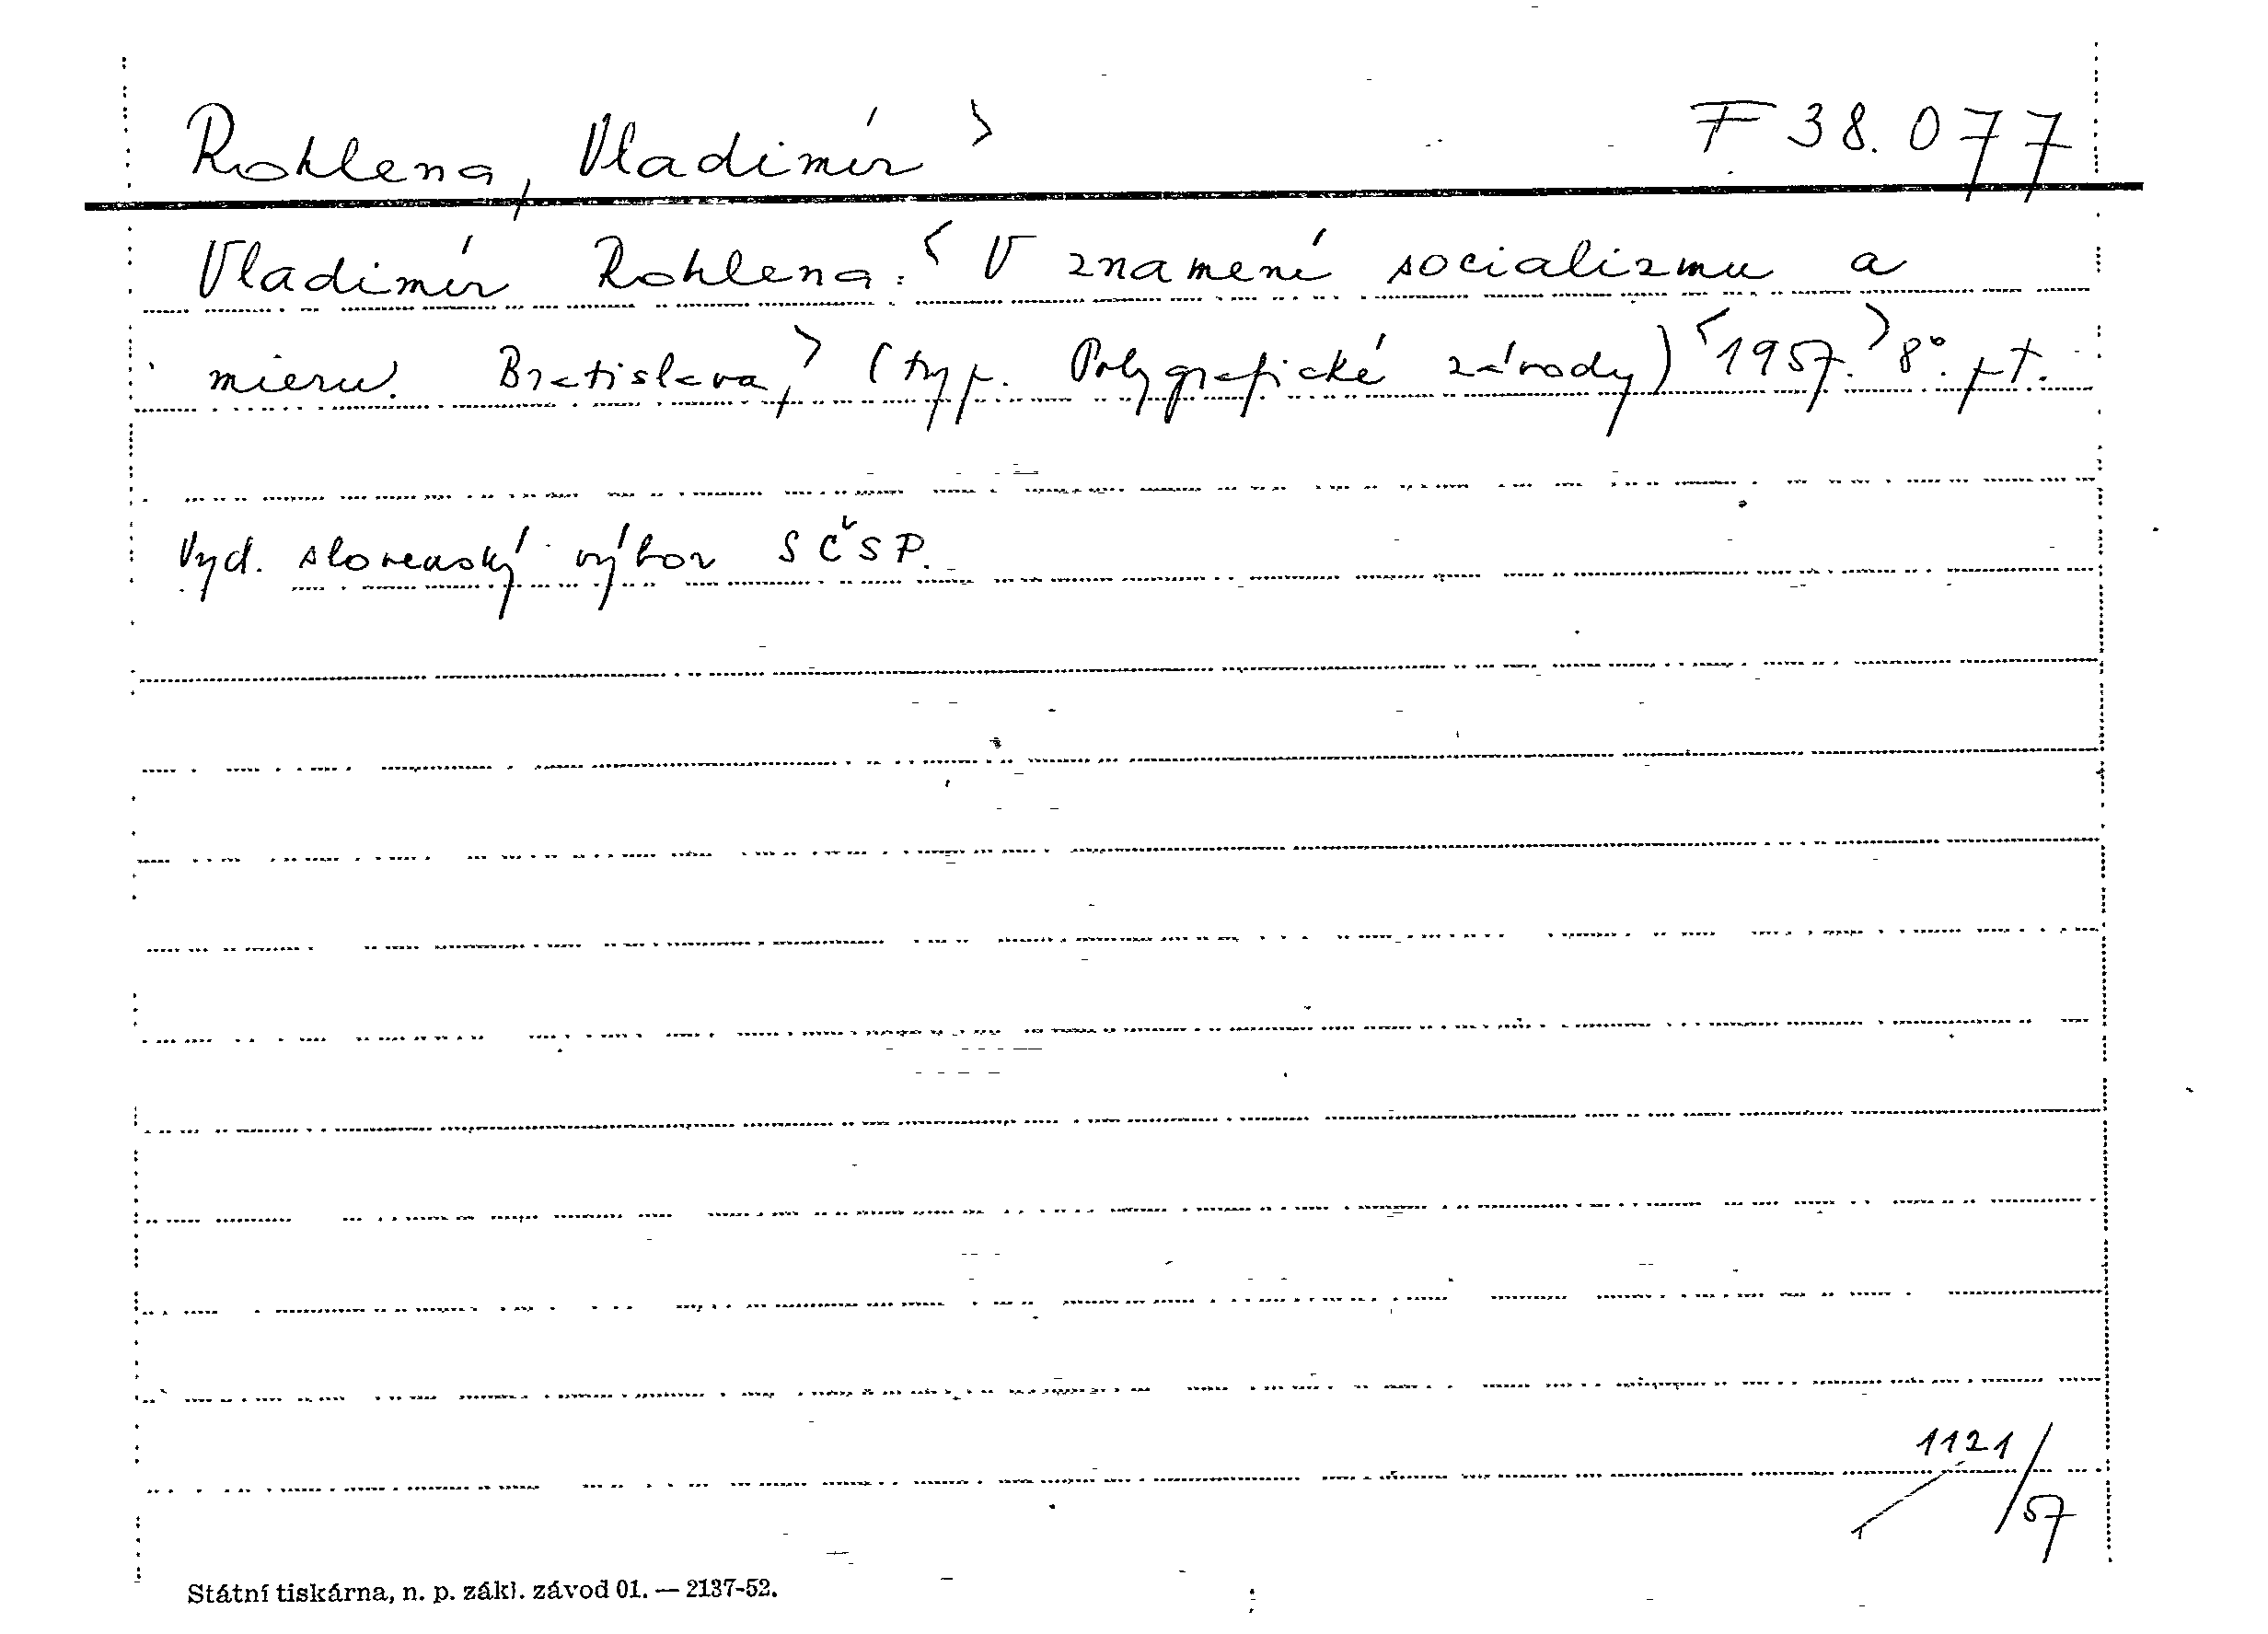 Rohlena, Vladimír > F 38.077
Vladimír Rohlena: < V znamení socializmu a
mieru. Bratislava, > (typ. Polygrafické závody) < 1957. > 8°. pt.
Vyd. slovenský výbor SČSP.
1121/57
Státní tiskárna, n. p. zákl. závod 01. — 2137-52.